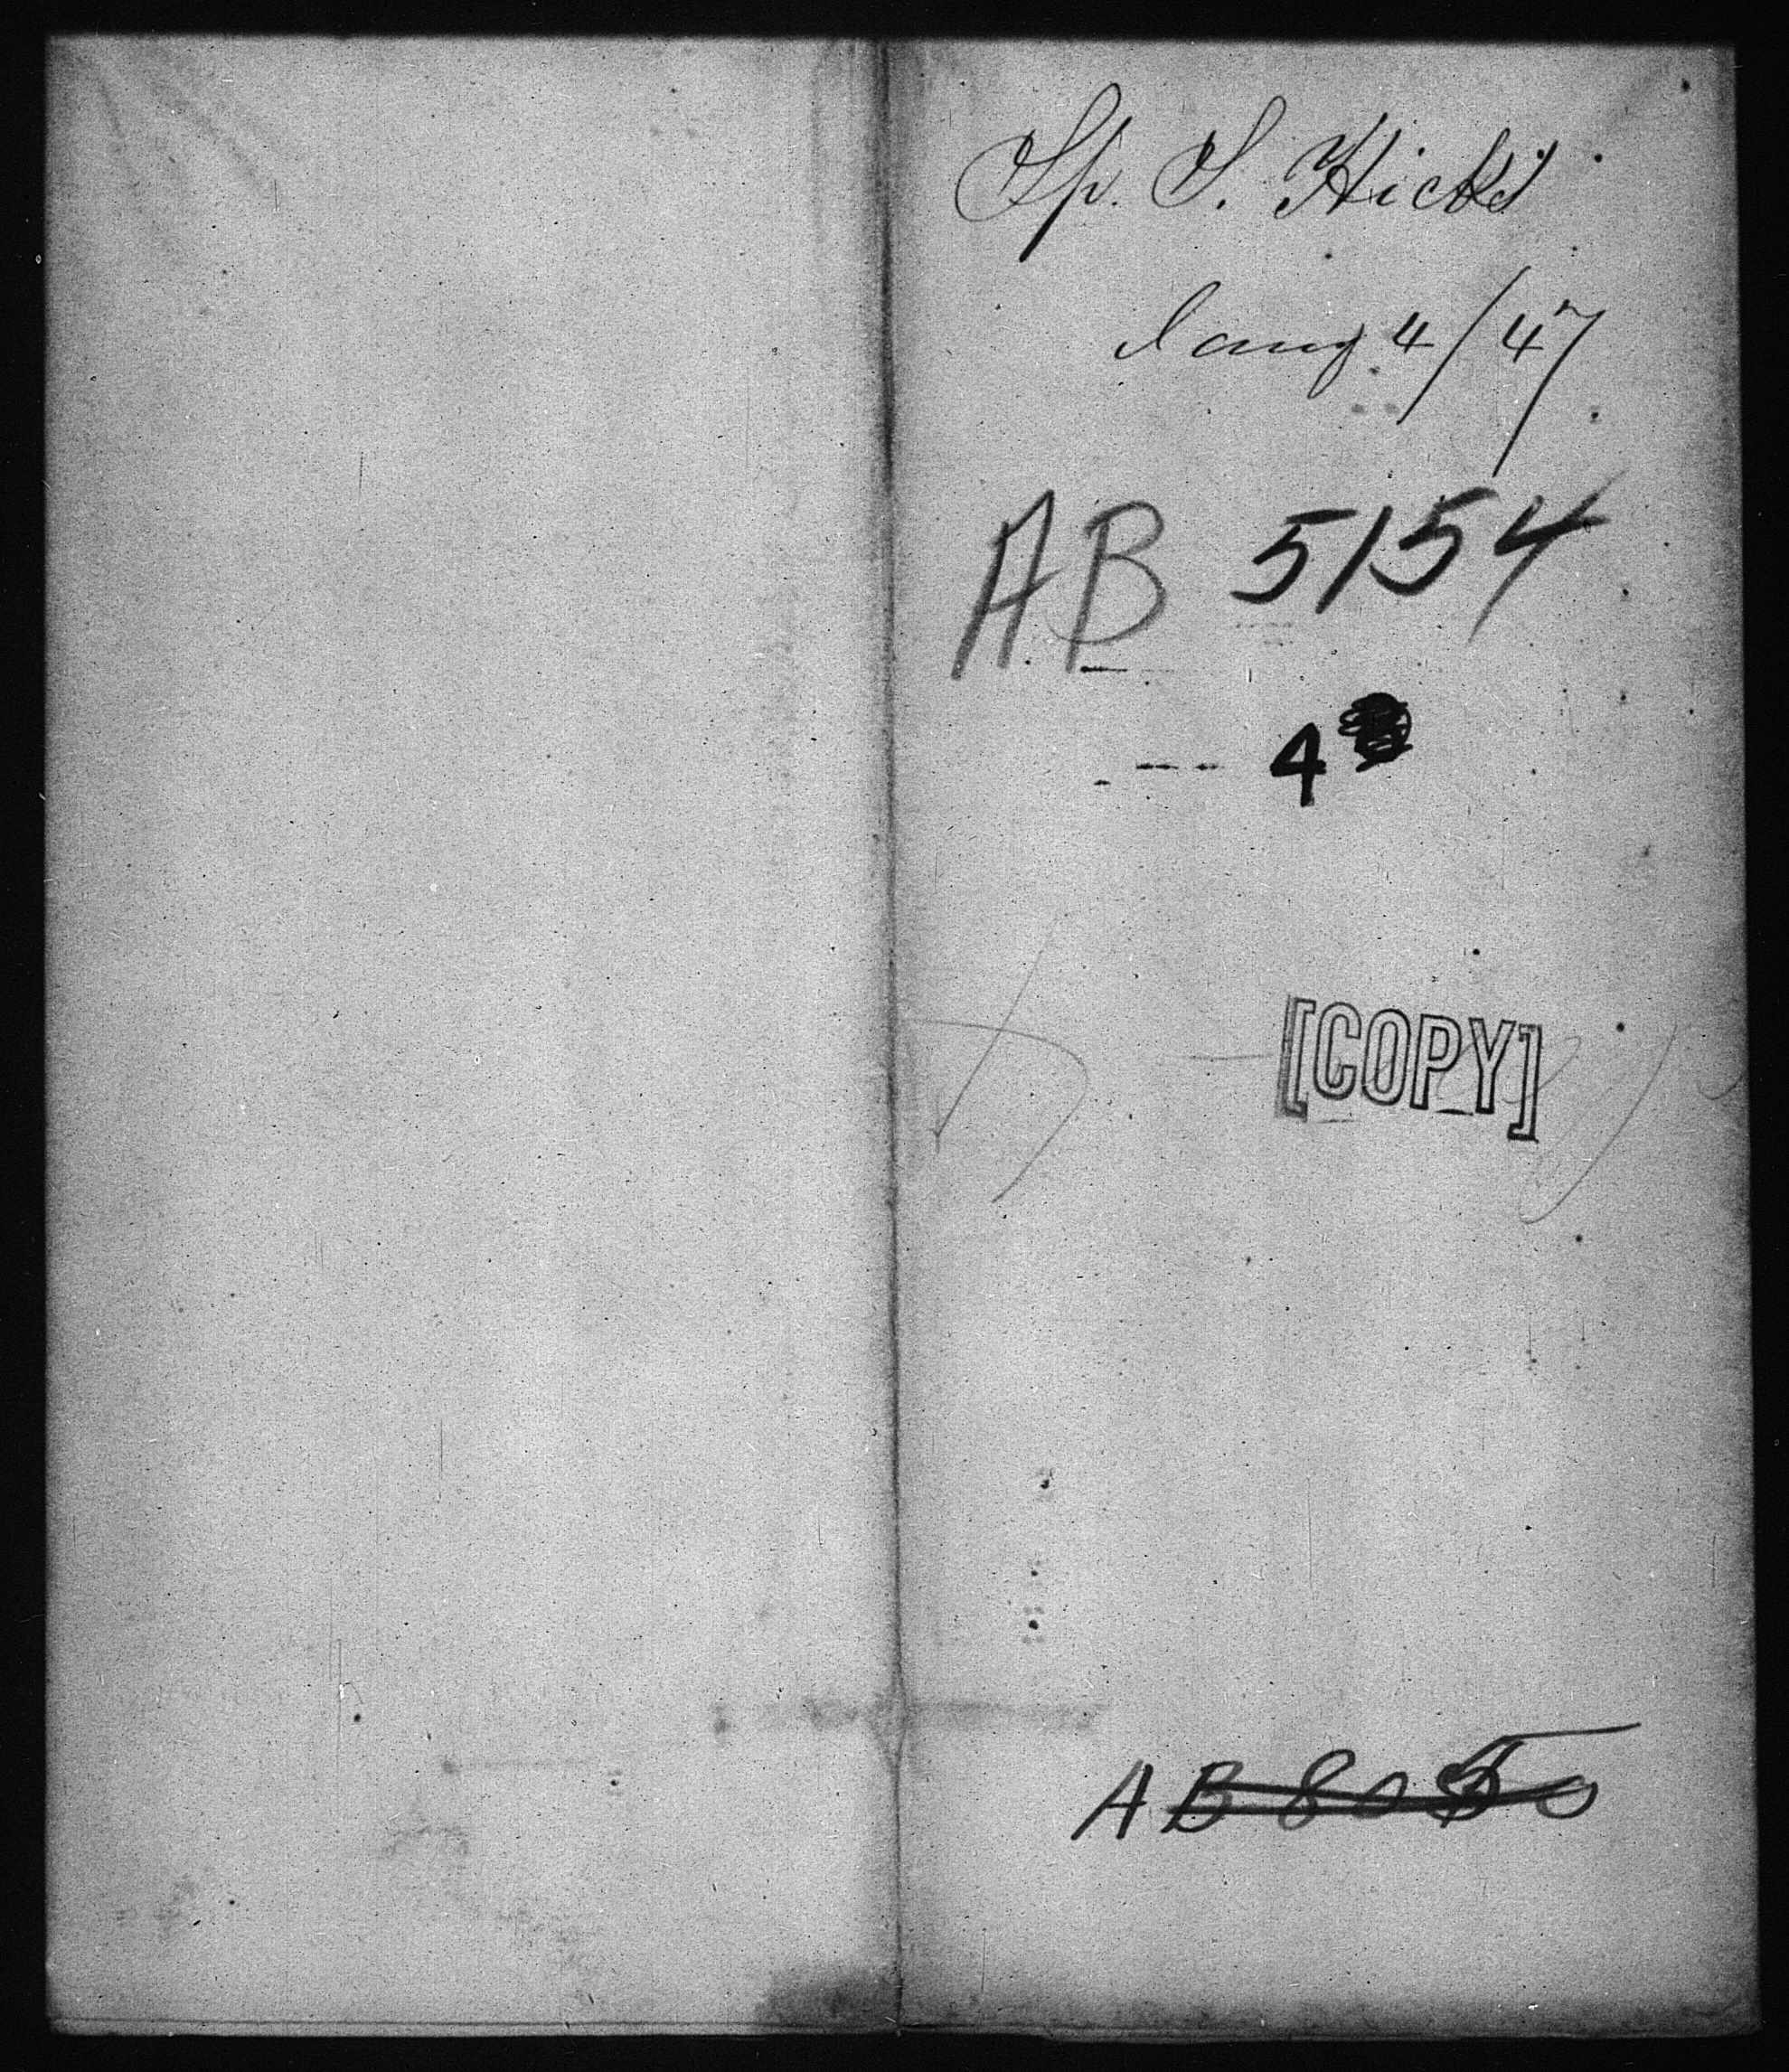 Sp. S. Hicks
Jany 4/47
AB 5154
4
[COPY]
AB 8050